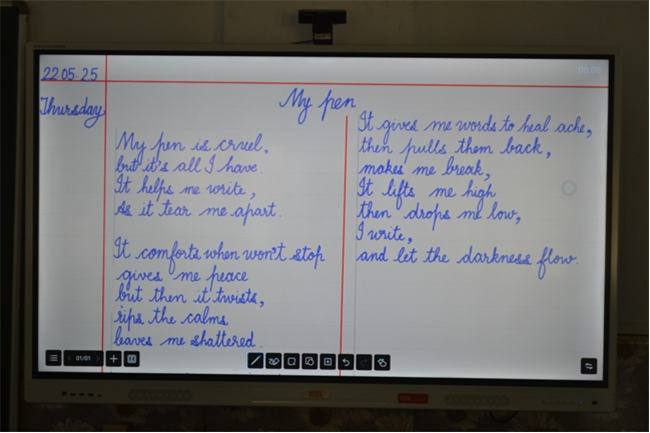 22.05.25
Thursday
My pen
My pen is cruel,
but it's all I have.
It helps me write,
As it tear me apart.
It comforts when won't stop
gives me peace
but then it twists,
rips the calms
leaves me shattered.
It gives me words to heal ache,
then pulls them back,
makes me break,
It lifts me high
then drops me low,
I write,
and let the darkness flow.
01/01